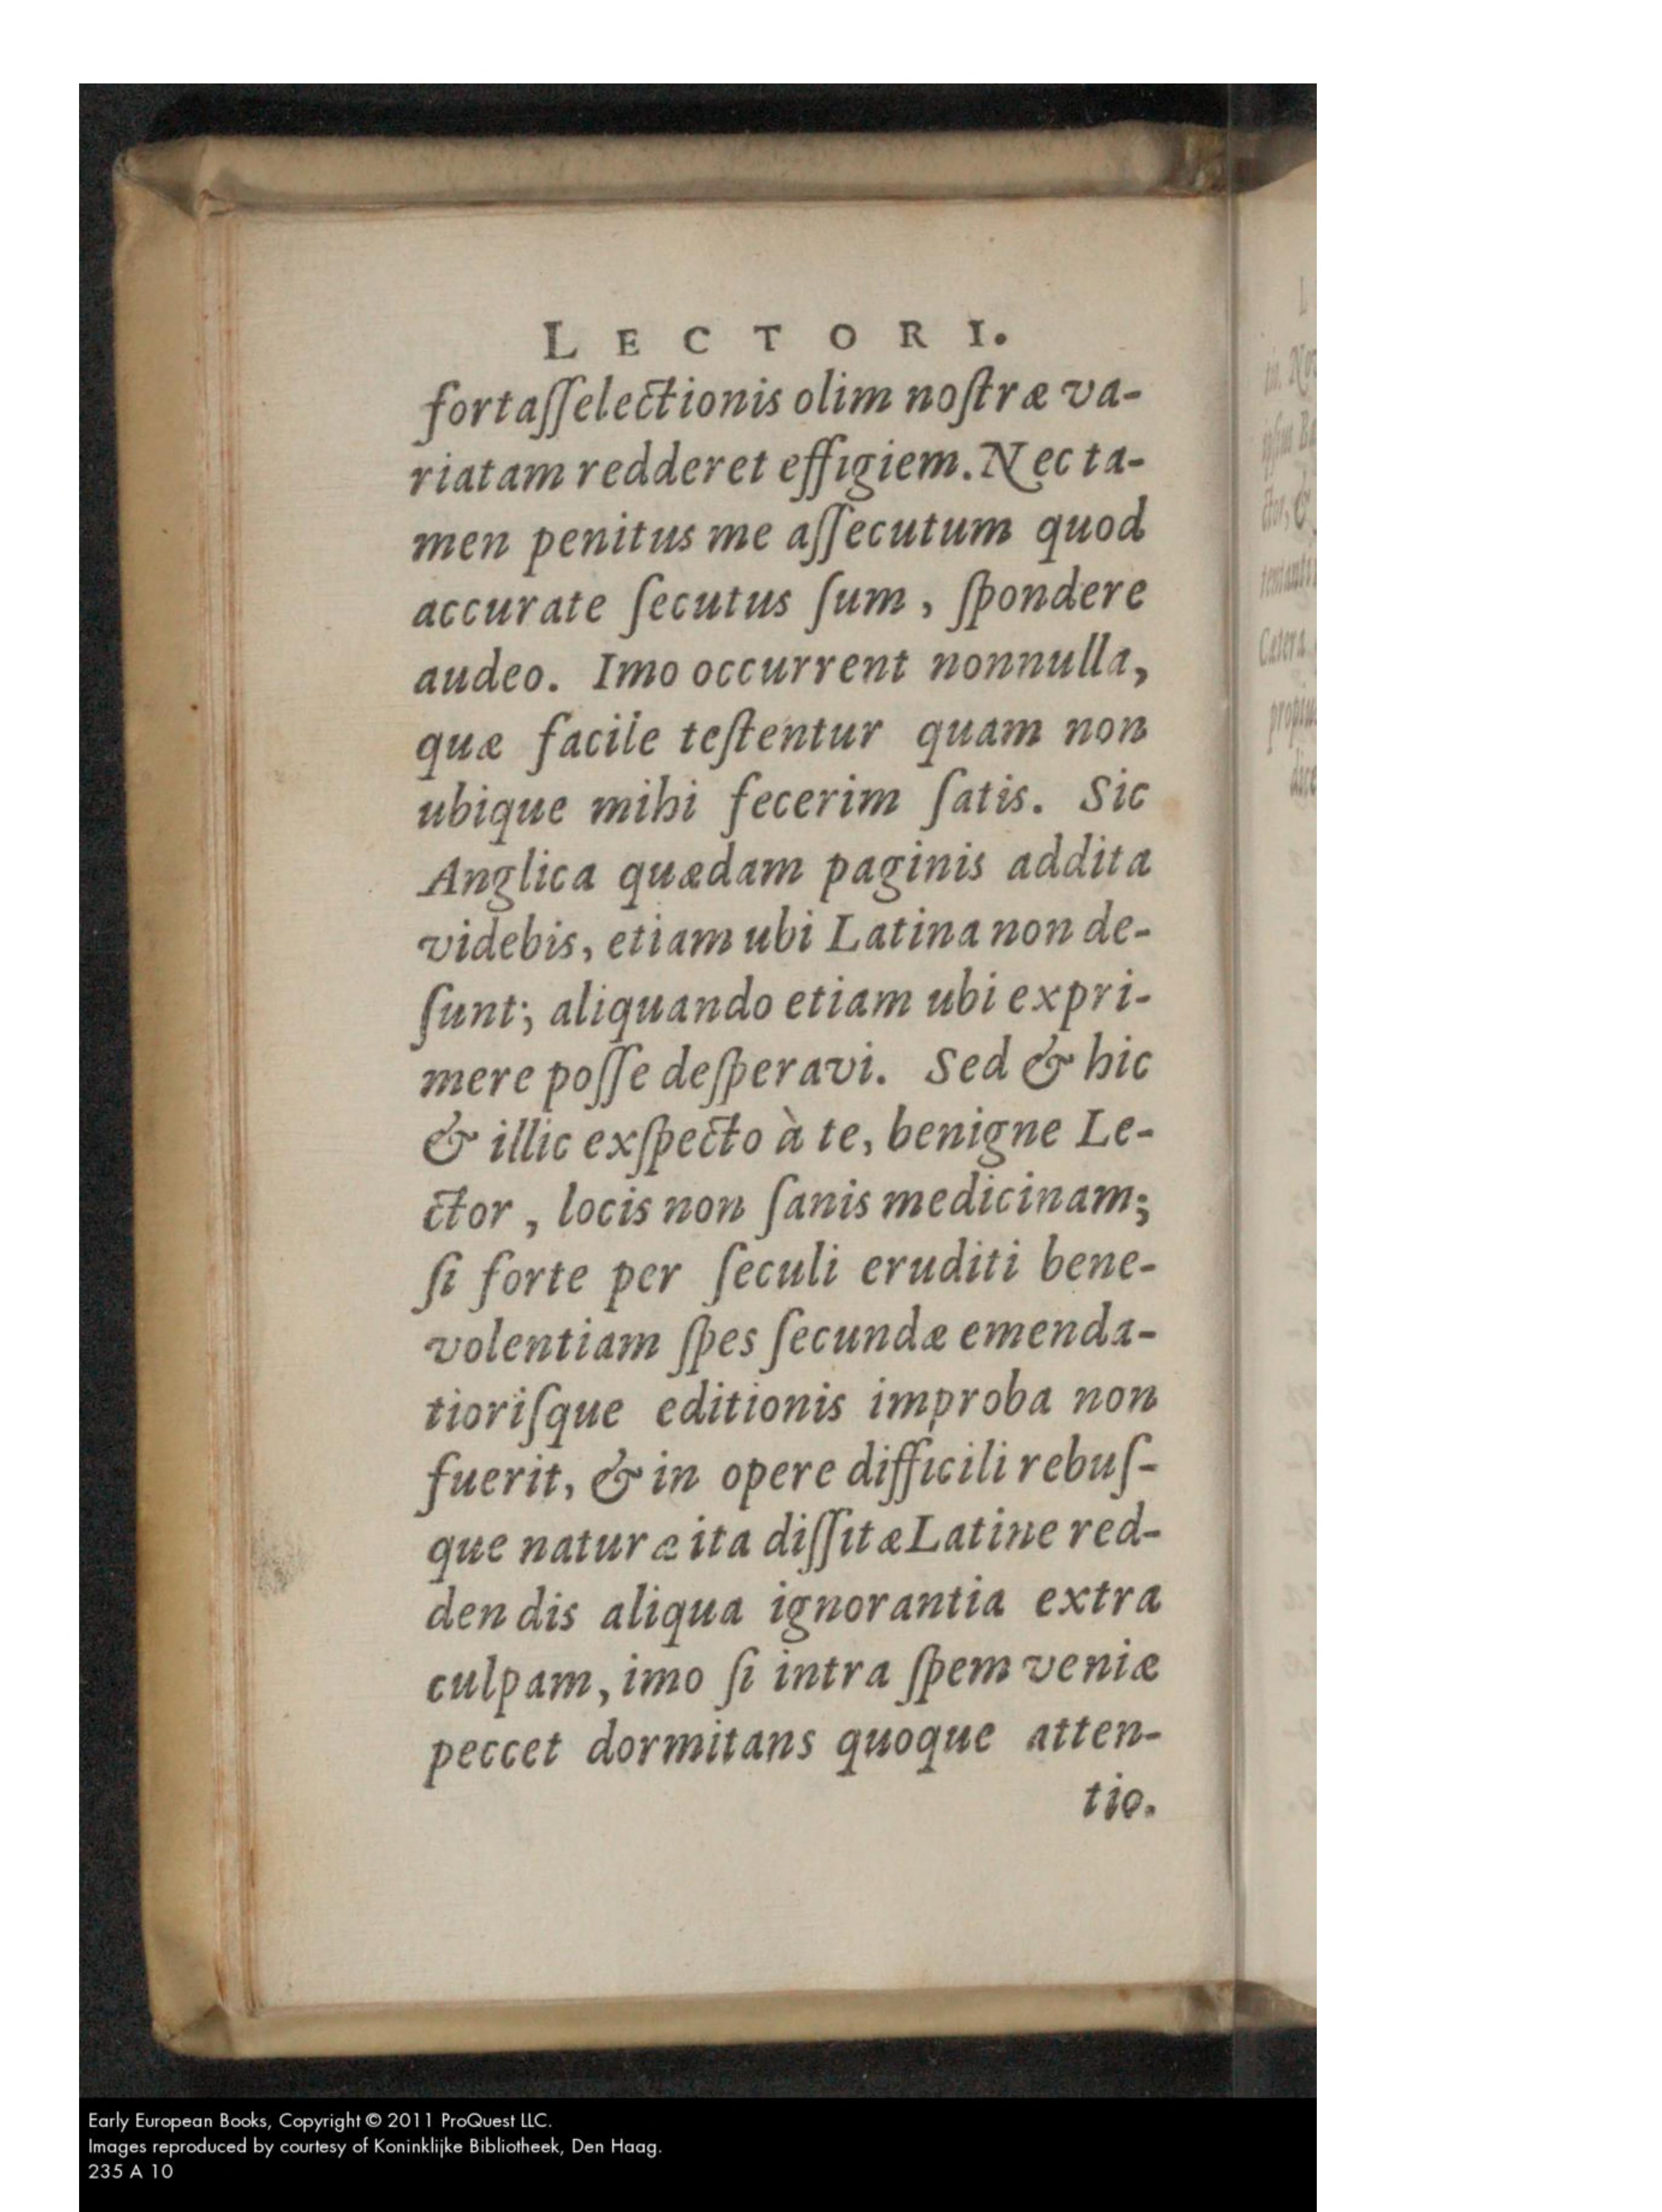 LECTORI.
fortaſſe lectionis olim noſtræ va-
riatam redderet effigiem. Nec ta-
men penitus me aſſecutum quod
accurate ſecutus ſum, ſpondere
audeo. Imo occurrent nonnulla,
quæ facile teſtentur quam non
ubique mihi fecerim ſatis. Sic
Anglica quædam paginis addita
videbis, etiam ubi Latina non de-
ſunt; aliquando etiam ubi expri-
mere poſſe deſperavi. Sed & hic
& illic exſpecto à te, benigne Le-
ctor, locis non ſanis medicinam;
ſi forte per ſeculi eruditi bene-
volentiam ſpes ſecundæ emenda-
tioriſque editionis improba non
fuerit, & in opere difficili rebuſ-
que naturæ ita diſſitæ Latine red-
dendis aliqua ignorantia extra
culpam, imo ſi intra ſpem veniæ
peccet dormitans quoque atten-
tio.
Early European Books, Copyright © 2011 ProQuest LLC.
Images reproduced by courtesy of Koninklijke Bibliotheek, Den Haag.
235 A 10